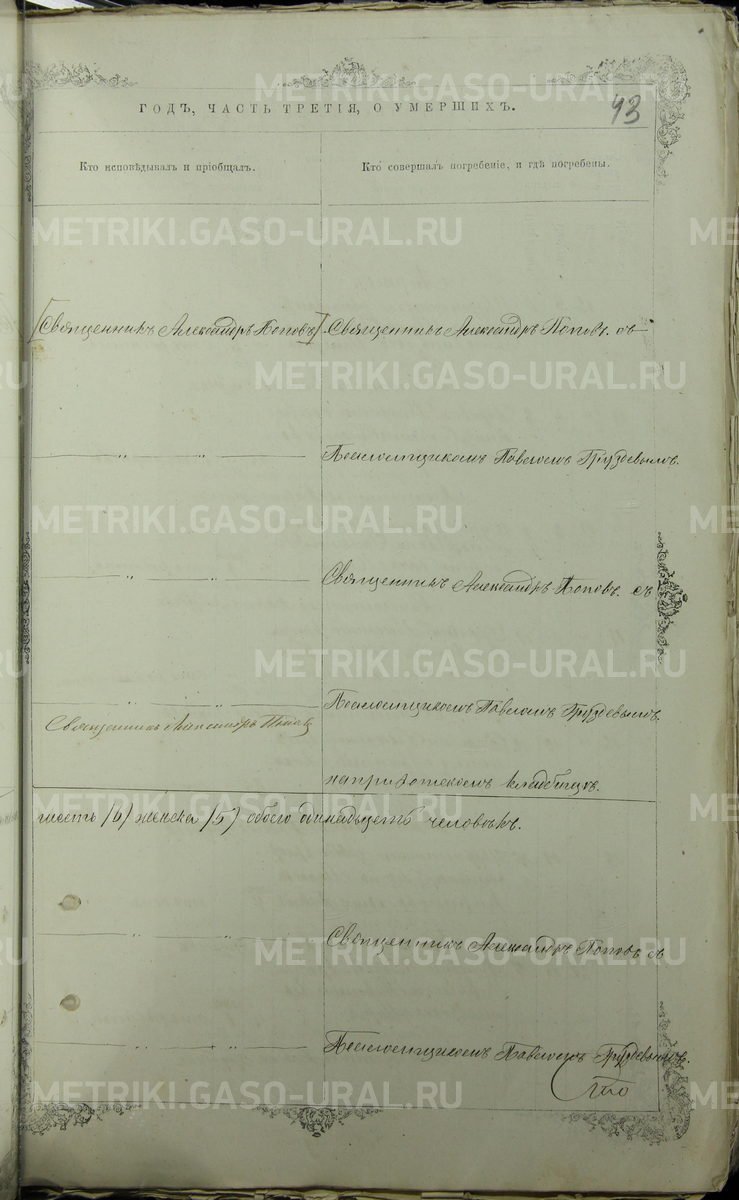 ГОДЪ, ЧАСТЬ ТРЕТІЯ, О УМЕРШИХЪ.
43
Кто исповѣдывалъ и пріобщалъ.
Кто совершалъ погребеніе, и гдѣ погребены.
METRIKI.GASO-URAL.RU
[Священникъ Александръ Поповъ].
Священникъ Александръ Поповъ. съ
METRIKI.GASO-URAL.RU
Псаломщикомъ Павломъ Груздевымъ.
METRIKI.GASO-URAL.RU
Священникъ Александръ Поповъ. съ
METRIKI.GASO-URAL.RU
Псаломщикомъ Павломъ Груздевымъ.
Священникъ Александръ Поповъ
на приходскомъ кладбищѣ.
METRIKI.GASO-URAL.RU
шесть /6/ женска /5/ обоего одинадцать человѣкъ.
Священникъ Александръ Поповъ съ
METRIKI.GASO-URAL.RU
Псаломщикомъ Павломъ Груздевымъ.
METRIKI.GASO-URAL.RU